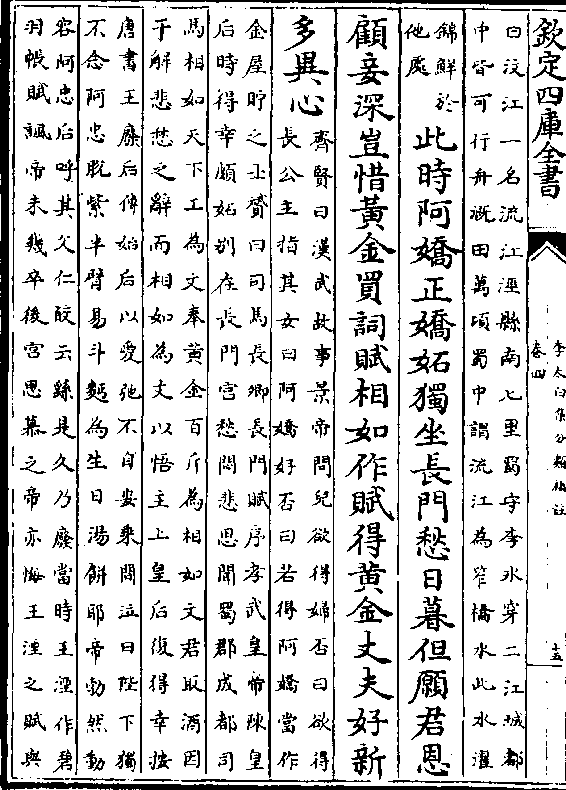 欽定四庫全書
李太白集分類補註
卷四
十五
曰汶江一名流江逕縣南七里蜀守李氷穿二江城都
中皆可行舟溉田萬頃蜀中謂流江為笮橋水此水濯
錦鮮於
他處
此時阿嬌正嬌妬獨坐長門愁日暮但願君恩
顧妾深豈惜黄金買詞賦相如作賦得黄金丈夫好新
多異心
齊賢曰漢武故事景帝問兒欲得婦否曰欲得
長公主指其女曰阿嬌好否曰若得阿嬌當作
金屋貯之士贇曰司馬長卿長門賦序孝武皇帝陳皇
后時得幸頗妬别在長門宫愁悶悲思聞蜀郡成都司
馬相如天下工為文奉黄金百斤為相如文君取酒因
于解悲愁之辭而相如為文以悟主上皇后復得幸按
唐書王廢后傳始后以愛弛不自安乘間泣曰陛下獨
不念阿忠脱紫半臂易斗麪為生日湯餅耶帝勃然動
容阿忠后呼其父仁皎云繇是久乃廢當時王湮作碧
羽帳賦諷帝未幾卒後宫思慕之帝亦悔王湮之賦與